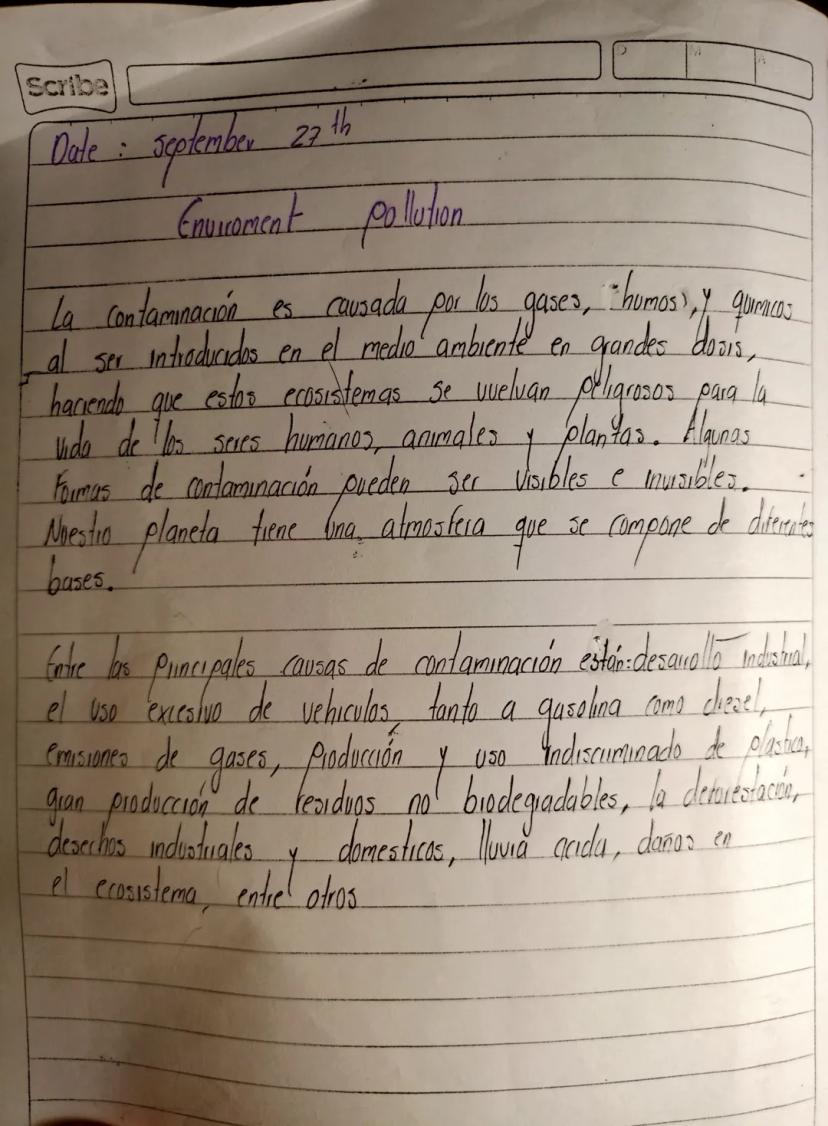 Scribe
D M A
Date : september 27 th
Enviroment pollution
La contaminación es causada por los gases, humos, y quimicos
al ser introducidos en el medio ambiente en grandes dosis,
haciendo que estos ecosistemas se vuelvan peligrosos para la
vida de los seres humanos, animales y plantas. Algunas
Formas de contaminación pueden ser visibles e invisibles.
Nuestro planeta tiene una atmosfera que se compone de diferentes
bases.
Entre las principales causas de contaminación están: desarrollo industrial,
el uso excesivo de vehiculos, tanto a gasolina como diesel,
emisiones de gases, producción y uso indiscriminado de plastico,
gran producción de residuos no biodegradables, la deforestación,
desechos industriales y domesticos, lluvia acida, daños en
el ecosistema, entre otros